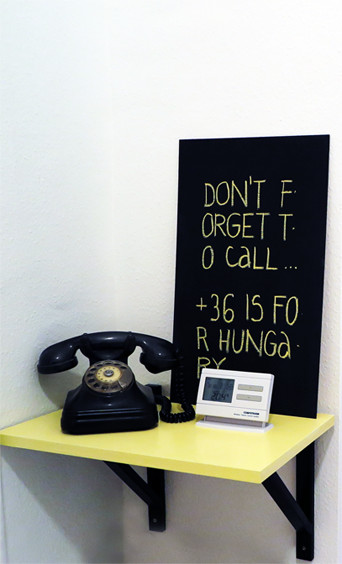 DON'T F·
ORGET T·
O CALL ...
+36 IS FO
R HUNGA·
RY